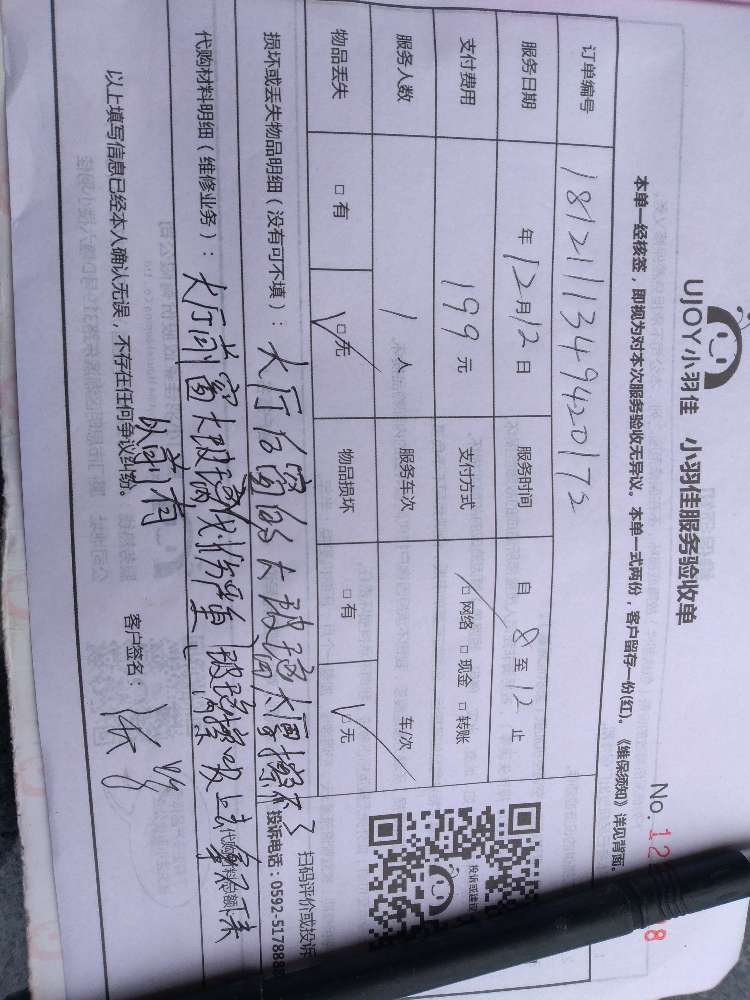 UJOY小羽佳 小羽佳服务验收单
No. 12 8
本单一经核签，即视为对本次服务验收无异议。本单一式两份，客户留存一份(红)。《维保须知》详见背面。
订单编号 181211134942017
服务日期 年12月12日 服务时间 自8至12止
支付费用 199元 支付方式 □网络 □现金 □转账
服务人数 1人 服务车次 车/次
物品丢失 □有 □无 物品损坏 □有 □无
投诉或建议
扫码评价或投诉
投诉电话：0592-517888
损坏或丢失物品明细（没有可不填）： 大厅后窗的大玻璃太厚擦不了
代购材料明细（维修业务）： 大厅前窗大玻璃划伤严重 玻璃擦吸上去拿不下来
代购材料总额
以前有
以上填写信息已经本人确认无误，不存在任何争议纠纷。 客户签名：